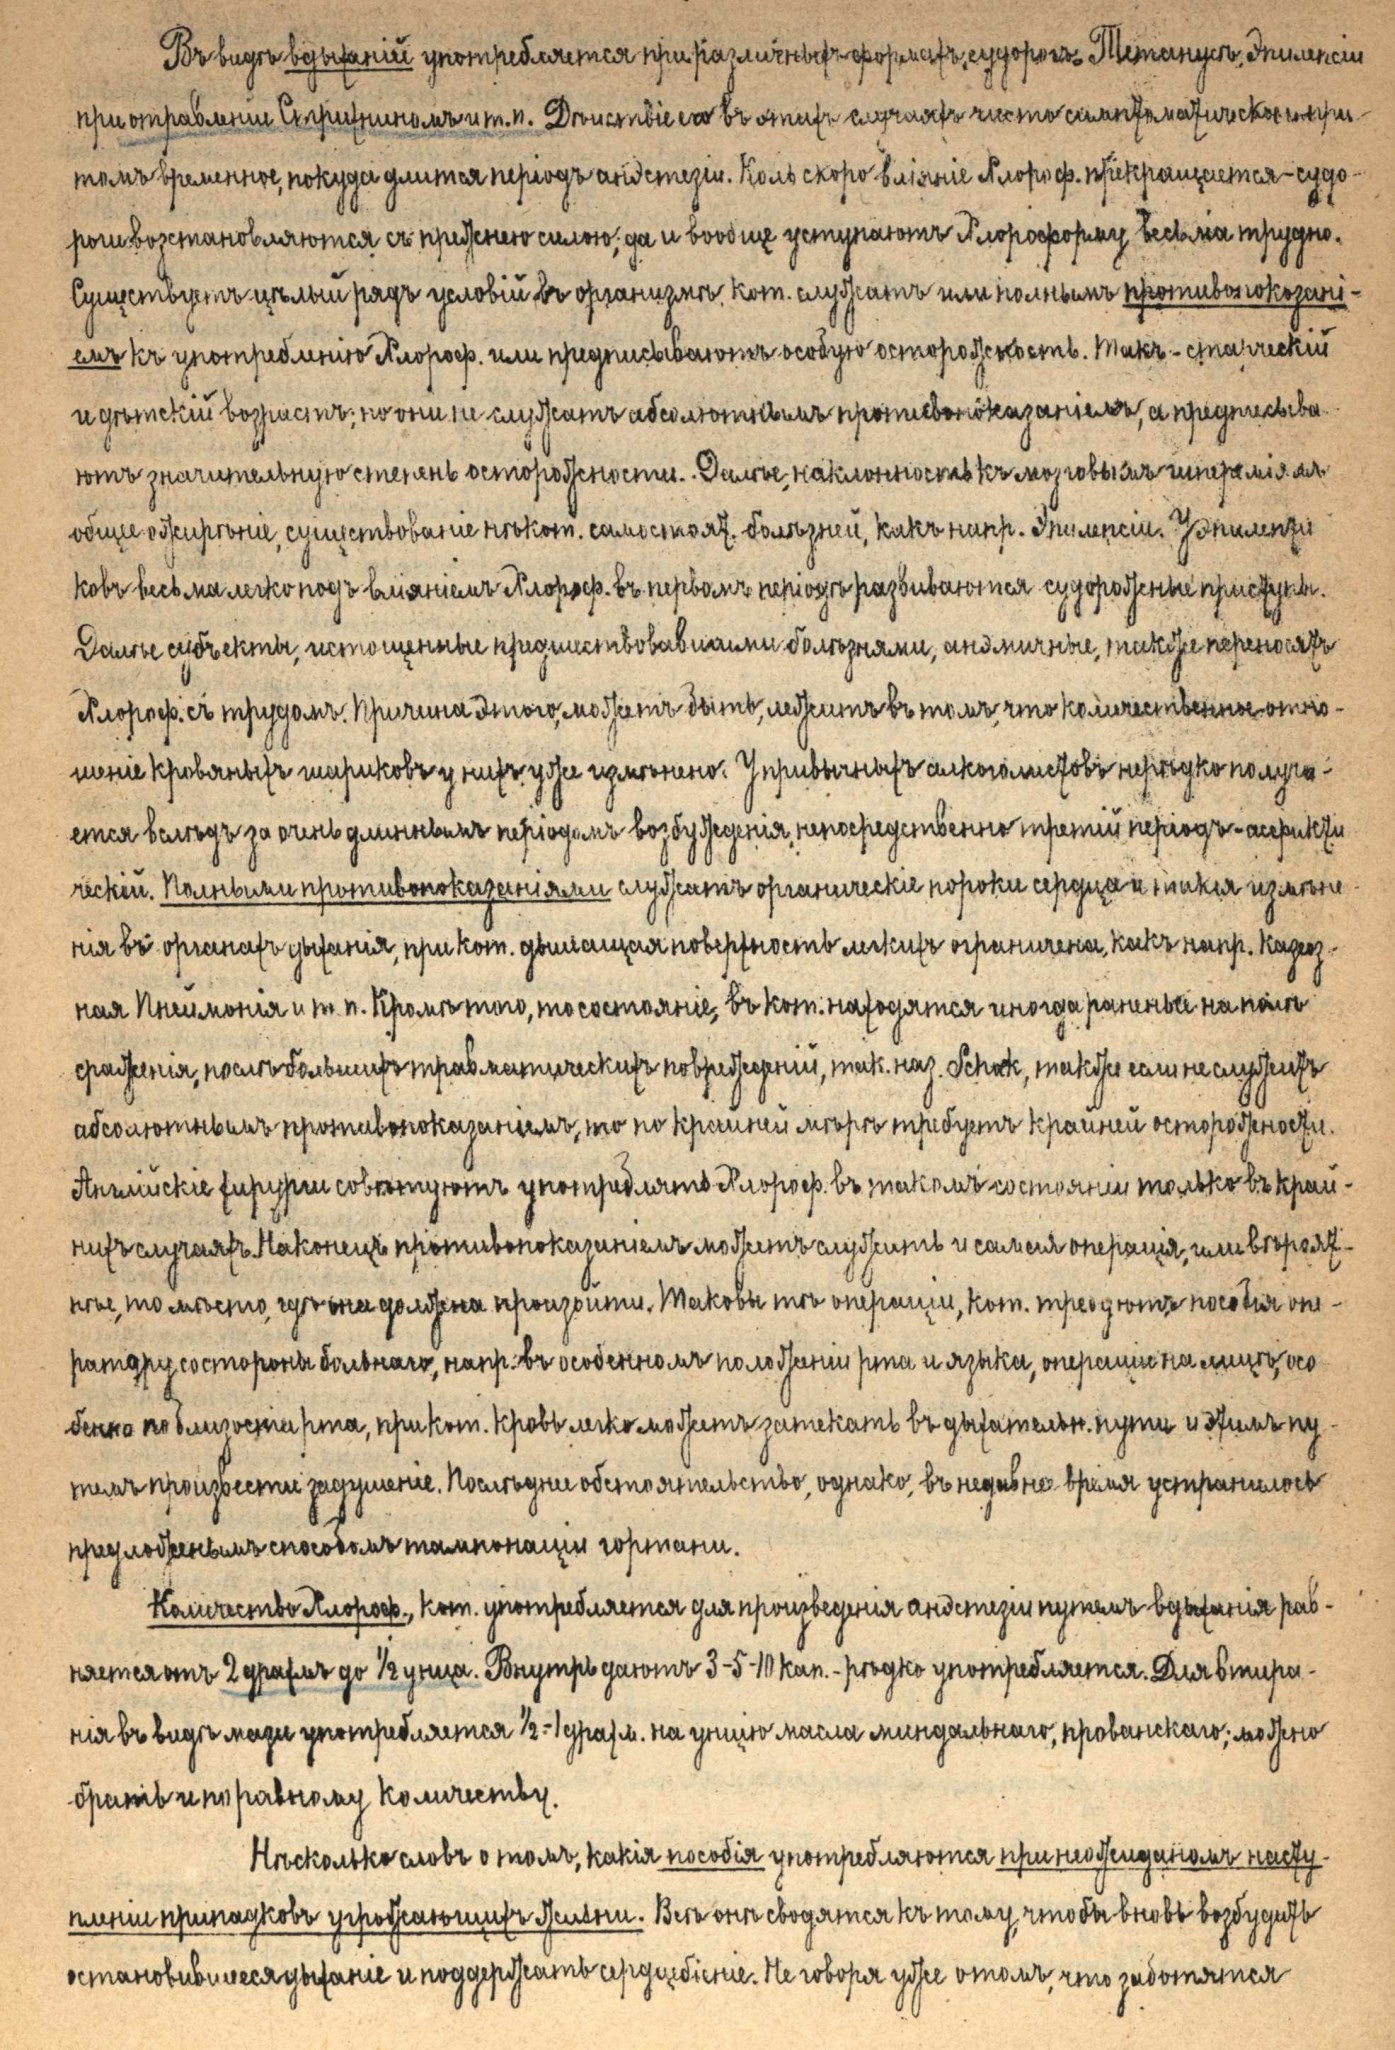 Въ видѣ вдыханій употребляется при различныхъ формахъ судорогъ. Тетанусъ, Эпилепсіи
при отравленіи Стрихниномъ и т. п. Дѣйствіе его въ этихъ случаяхъ чисто симптоматическое и при
томъ временное, покуда длится періодъ анэстезіи. Коль скоро вліяніе Хлороф. прекращается – судо-
роги возстановляются съ прежнею силою, да и вообще уступаютъ Хлороформу весьма трудно.
Существуетъ цѣлый рядъ условій въ организмѣ, кот. служатъ или полнымъ противопоказані-
емъ къ употребленію Хлороф. или предписываютъ особую осторожность. Такъ – старческій
и дѣтскій возрастъ; но они не служатъ абсолютнымъ противопоказаніемъ, а предписыва
ютъ значительную степень осторожности. Далѣе, наклонность къ мозговымъ гипереміямъ
общее ожирѣніе, существованіе нѣкот. самостоят. болѣзней, какъ напр. Эпилепсіи. У Эпилепти
ковъ весьма легко подъ вліяніемъ Хлороф. въ первомъ періодѣ развиваются судорожные приступы.
Далѣе субъекты, истощенные предшествовавшими болѣзнями, анэмичные, также переносятъ
Хлороф. съ трудомъ. Причина этого, можетъ быть, лежитъ въ томъ, что количественное отно-
шеніе кровяныхъ шариковъ у нихъ уже измѣнено. У привычныхъ алкоголистовъ нерѣдко получа-
ется вслѣдъ за очень длиннымъ періодомъ возбужденія, непосредственно третій періодъ – асфикти
ческій. Полными противопоказаніями служатъ органическіе пороки сердца и такія измѣне-
нія въ органахъ дыханія, при кот. дышащая поверхность легкихъ ограничена, какъ напр. Казеоз-
ная Пнеймонія и т. п. Кромѣ того, то состояніе, въ кот. находятся иногда раненые на полѣ
сраженія, послѣ большихъ травматическихъ поврежденій, так. наз. Schok, также если не служитъ
абсолютнымъ противопоказаніемъ, то по крайней мѣрѣ требуетъ крайней осторожности.
Англійскіе хирурги совѣтуютъ употреблять Хлороф. въ такомъ состояніи только въ край-
нихъ случаяхъ. Наконецъ противопоказаніемъ можетъ служить и самая операція, или вѣроят-
нѣе, то мѣсто, гдѣ она должна произойти. Таковы тѣ операціи, кот. требуютъ пособія опе-
ратору со стороны больнаго, напр. въ особенномъ положеніи рта и языка, операціи на лицѣ, осо
бенно по близости рта, при кот. кровь легко можетъ затекать въ дыхательн. пути и этимъ пу-
темъ произвести задушеніе. Послѣднее обстоятельство, однако, въ недавнее время устранилось
предложеннымъ способомъ тампонаціи гортани.
Количество Хлороф., кот. употребляется для произведенія анэстезіи путемъ вдыханія рав-
няется отъ 2 драхмъ до ½ унца. Внутрь даютъ 3–5–10 кап. – рѣдко употребляется. Для втира-
нія въ видѣ мази употребляется ½–1 драхм. на унцію масла миндальнаго, прованскаго; можно
брать и по равному количеству.
Нѣсколько словъ о томъ, какія пособія употребляются при неожиданомъ насту-
пленіи припадковъ угрожающихъ жизни. Всѣ онѣ сводятся къ тому, чтобы вновь возбудить
остановившееся дыханіе и поддержать сердцебіеніе. Не говоря уже о томъ, что заботятся